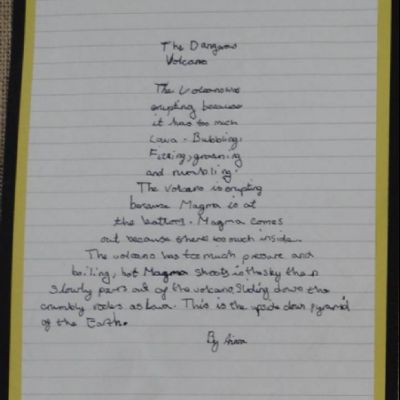 The Dangrous
Volcano
The Volcano was
erupting because
it has too much
Lava. Bubbling,
Fizzing, groaning
and rumbling.
The Volcano is erupting
because Magma is at
the bottom. Magma comes
out because theres too much inside.
The volcano has too much pressure and
boiling, hot Magma shoots in the sky then
slowly pers out of the volcano, sliding down the
crumbly rocks as Lava. This is the upside down pyramid
of the Earth.
By